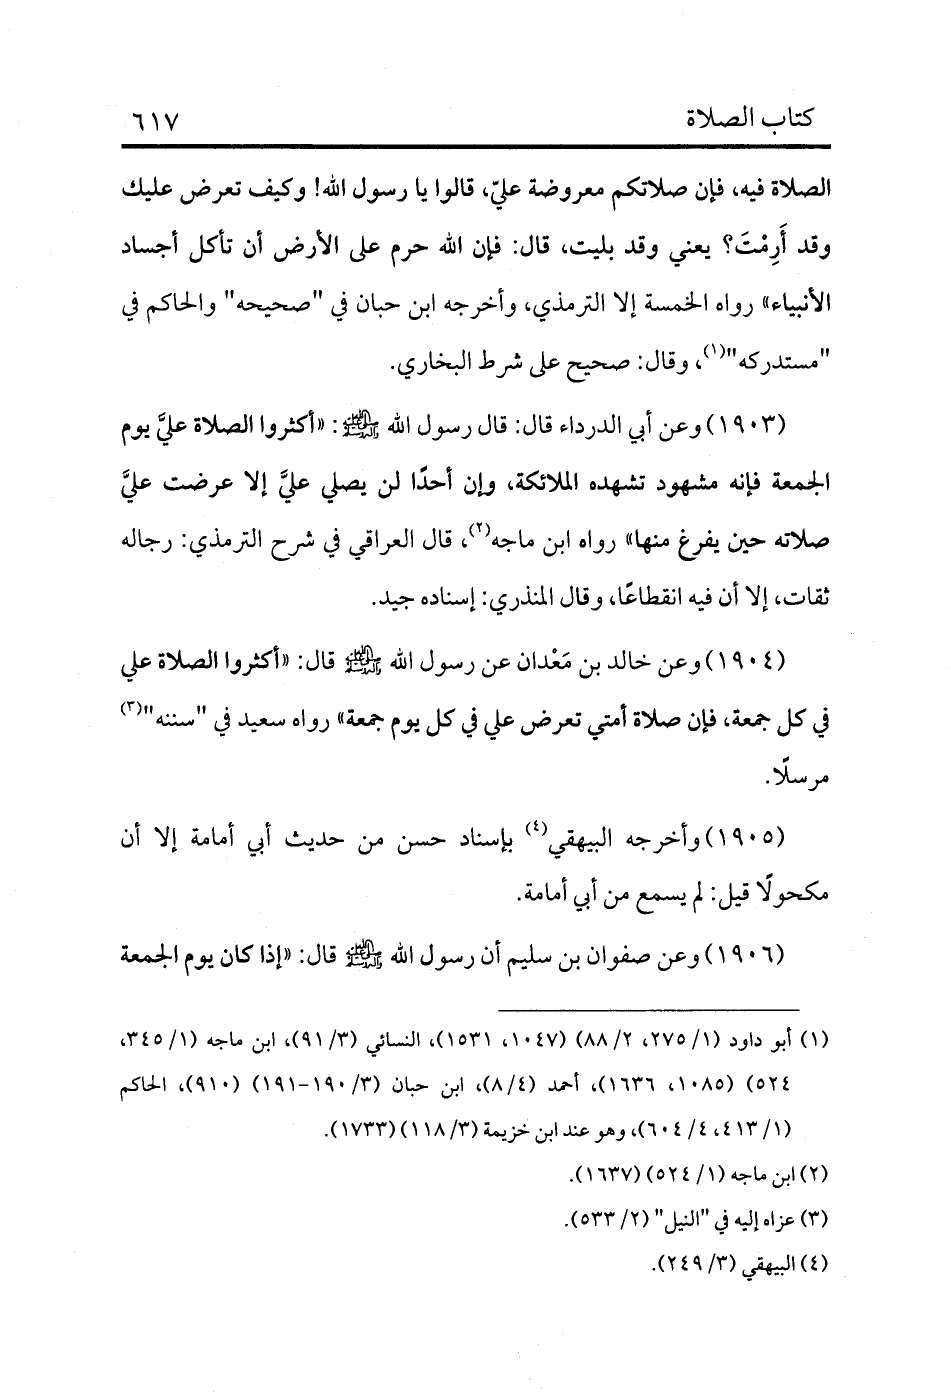 كتاب الصلاة ٦١٧
الصلاة فيه، فإن صلاتكم معروضة عليّ، قالوا يا رسول الله! وكيف تعرض عليك
وقد أَرِمْتَ؟ يعني وقد بليت، قال: فإن الله حرم على الأرض أن تأكل أجساد
الأنبياء» رواه الخمسة إلا الترمذي، وأخرجه ابن حبان في "صحيحه" والحاكم في
"مستدركه"(١)، وقال: صحيح على شرط البخاري.
(١٩٠٣) وعن أبي الدرداء قال: قال رسول الله ﷺ: «أكثروا الصلاة عليَّ يوم
الجمعة فإنه مشهود تشهده الملائكة، وإن أحدًا لن يصلي عليَّ إلا عرضت عليَّ
صلاته حين يفرغ منها» رواه ابن ماجه(٢)، قال العراقي في شرح الترمذي: رجاله
ثقات، إلا أن فيه انقطاعًا، وقال المنذري: إسناده جيد.
(١٩٠٤) وعن خالد بن مَعْدان عن رسول الله ﷺ قال: «أكثروا الصلاة علي
في كل جمعة، فإن صلاة أمتي تعرض علي في كل يوم جمعة» رواه سعيد في "سننه"(٣)
مرسلًا.
(١٩٠٥) وأخرجه البيهقي(٤) بإسناد حسن من حديث أبي أمامة إلا أن
مكحولًا قيل: لم يسمع من أبي أمامة.
(١٩٠٦) وعن صفوان بن سليم أن رسول الله ﷺ قال: «إذا كان يوم الجمعة
(١) أبو داود (١/ ٢٧٥، ٢/ ٨٨) (١٠٤٧، ١٥٣١)، النسائي (٣/ ٩١)، ابن ماجه (١/ ٣٤٥،
٥٢٤) (١٠٨٥، ١٦٣٦)، أحمد (٤/ ٨)، ابن حبان (٣/ ١٩٠-١٩١) (٩١٠)، الحاكم
(١/ ٤١٣، ٤/ ٦٠٤)، وهو عند ابن خزيمة (٣/ ١١٨) (١٧٣٣).
(٢) ابن ماجه (١/ ٥٢٤) (١٦٣٧).
(٣) عزاه إليه في "النيل" (٢/ ٥٣٣).
(٤) البيهقي (٣/ ٢٤٩).